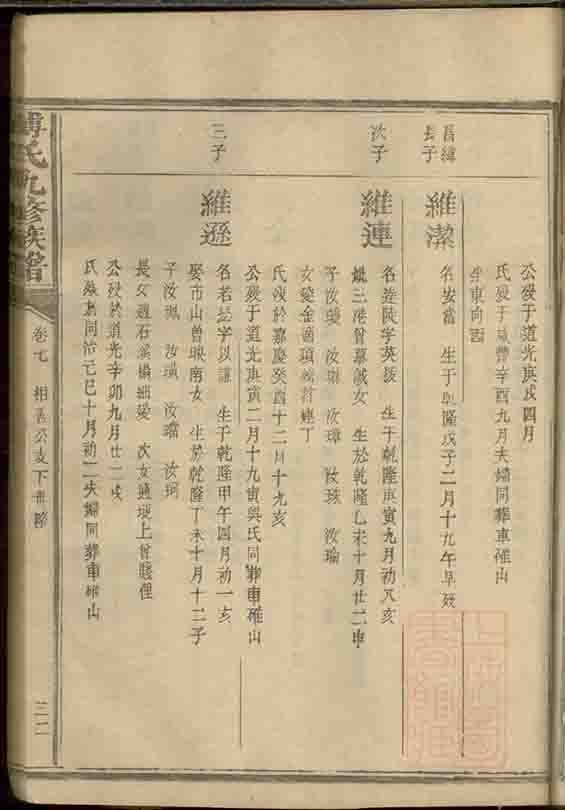 公殁于道光庚戌四月
氏殁于咸豐辛酉九月夫婦同葬車碓山
坐東向酉
昌緯
長子
維潔
名安當 生于乾隆戊子二月十九午早殁
次子
維連
名達陡字英拔 生于乾隆庚寅九月初八亥
娶三港曾 女 生於乾隆乙未十月廿二申
子汝 汝 汝璋 汝珠 汝瑜
女 金適
氏殁於嘉慶癸酉十二月十九亥
公殁于道光庚寅二月十九寅與氏同葬車碓山
三子
維遜
名若 字以謙 生于乾隆甲午四月初一亥
娶市山曾映南女 生於乾隆丁未十月十二子
子汝珮 汝璜 汝璿 汝珂
長女適石溪楊細 次女適 上曾
公殁於道光辛卯九月廿二戌
氏殁於同治己巳十月初二夫婦同葬車碓山
傅氏九修族譜
卷七 相 公支下世系